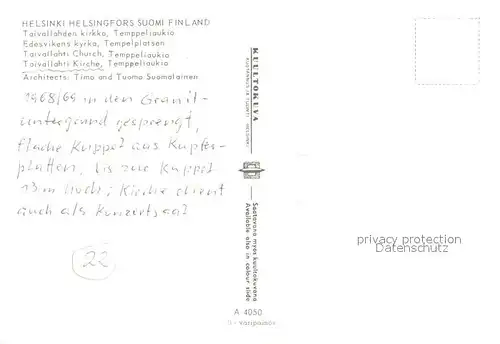 HELSINKI HELSINGFORS SUOMI FINLAND
Taivallahden kirkko, Temppeliaukio
Edesvikens kyrka, Tempelplatsen
Taivallahti Church, Temppeliaukio
Taivallahti Kirche, Temppeliaukio
Architects: Timo and Tuomo Suomalainen
1968/69 in den Granit-
untergrund gesprengt,
flache Kuppel aus Kupfer-
platten, bis zur Kuppel
13 m hoch; Kirche dient
auch als Konzertsaal
22
KUULTOKUVA
KUSTANNUS JA TUONTI HELSINKI
Saatavana myös kuultokuvana
Available also in colour slide
A 4050
väripainos
privacy protection
Datenschutz